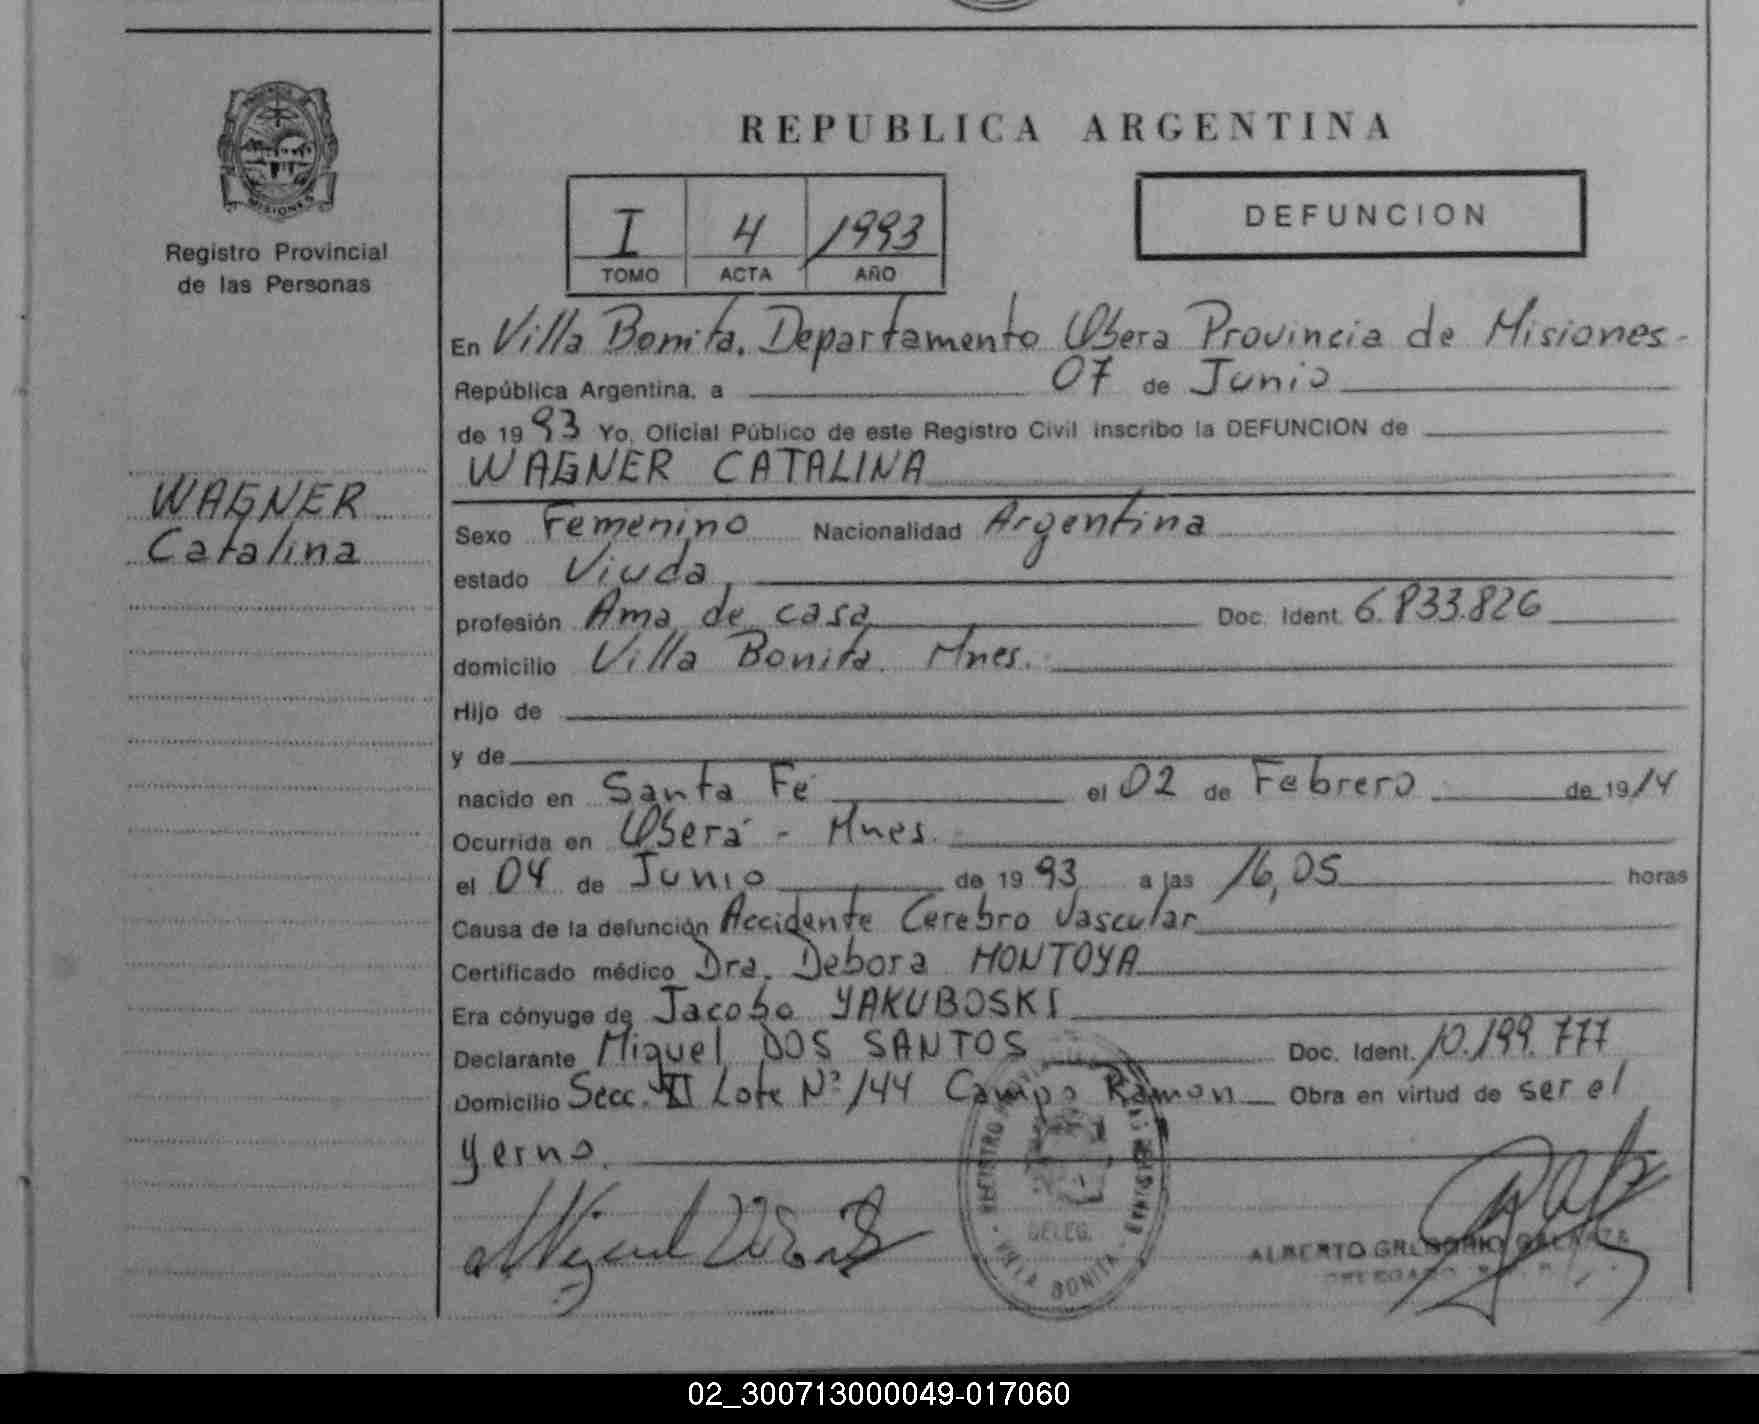 REPUBLICA ARGENTINA
MISIONES
Registro Provincial
de las Personas
I 4 1993
TOMO ACTA AÑO
DEFUNCION
En Villa Bonita. Departamento Obera Provincia de Misiones-
República Argentina, a 07 de Junio
de 1993 Yo, Oficial Público de este Registro Civil inscribo la DEFUNCION de
WAGNER CATALINA
WAGNER
Catalina
Sexo Femenino Nacionalidad Argentina
estado Viuda
profesión Ama de casa Doc. Ident. 6.833.826
domicilio Villa Bonita. Mnes.
Hijo de
y de
nacido en Santa Fé el 02 de Febrero de 1914
Ocurrida en Oberá - Mnes.
el 04 de Junio de 1993 a las 16,05 horas
Causa de la defunción Accidente Cerebro Vascular
Certificado médico Dra. Debora MONTOYA
Era cónyuge de Jacobo YAKUBOSKI
Declarante Miguel DOS SANTOS Doc. Ident. 10.199.777
Domicilio Secc. II Lote Nº 144 Campo Ramon Obra en virtud de ser el
yerno.
REGISTRO
DELEG.
VILLA BONITA
ALBERTO GREGORIO
DELEGADO
02_300713000049-017060